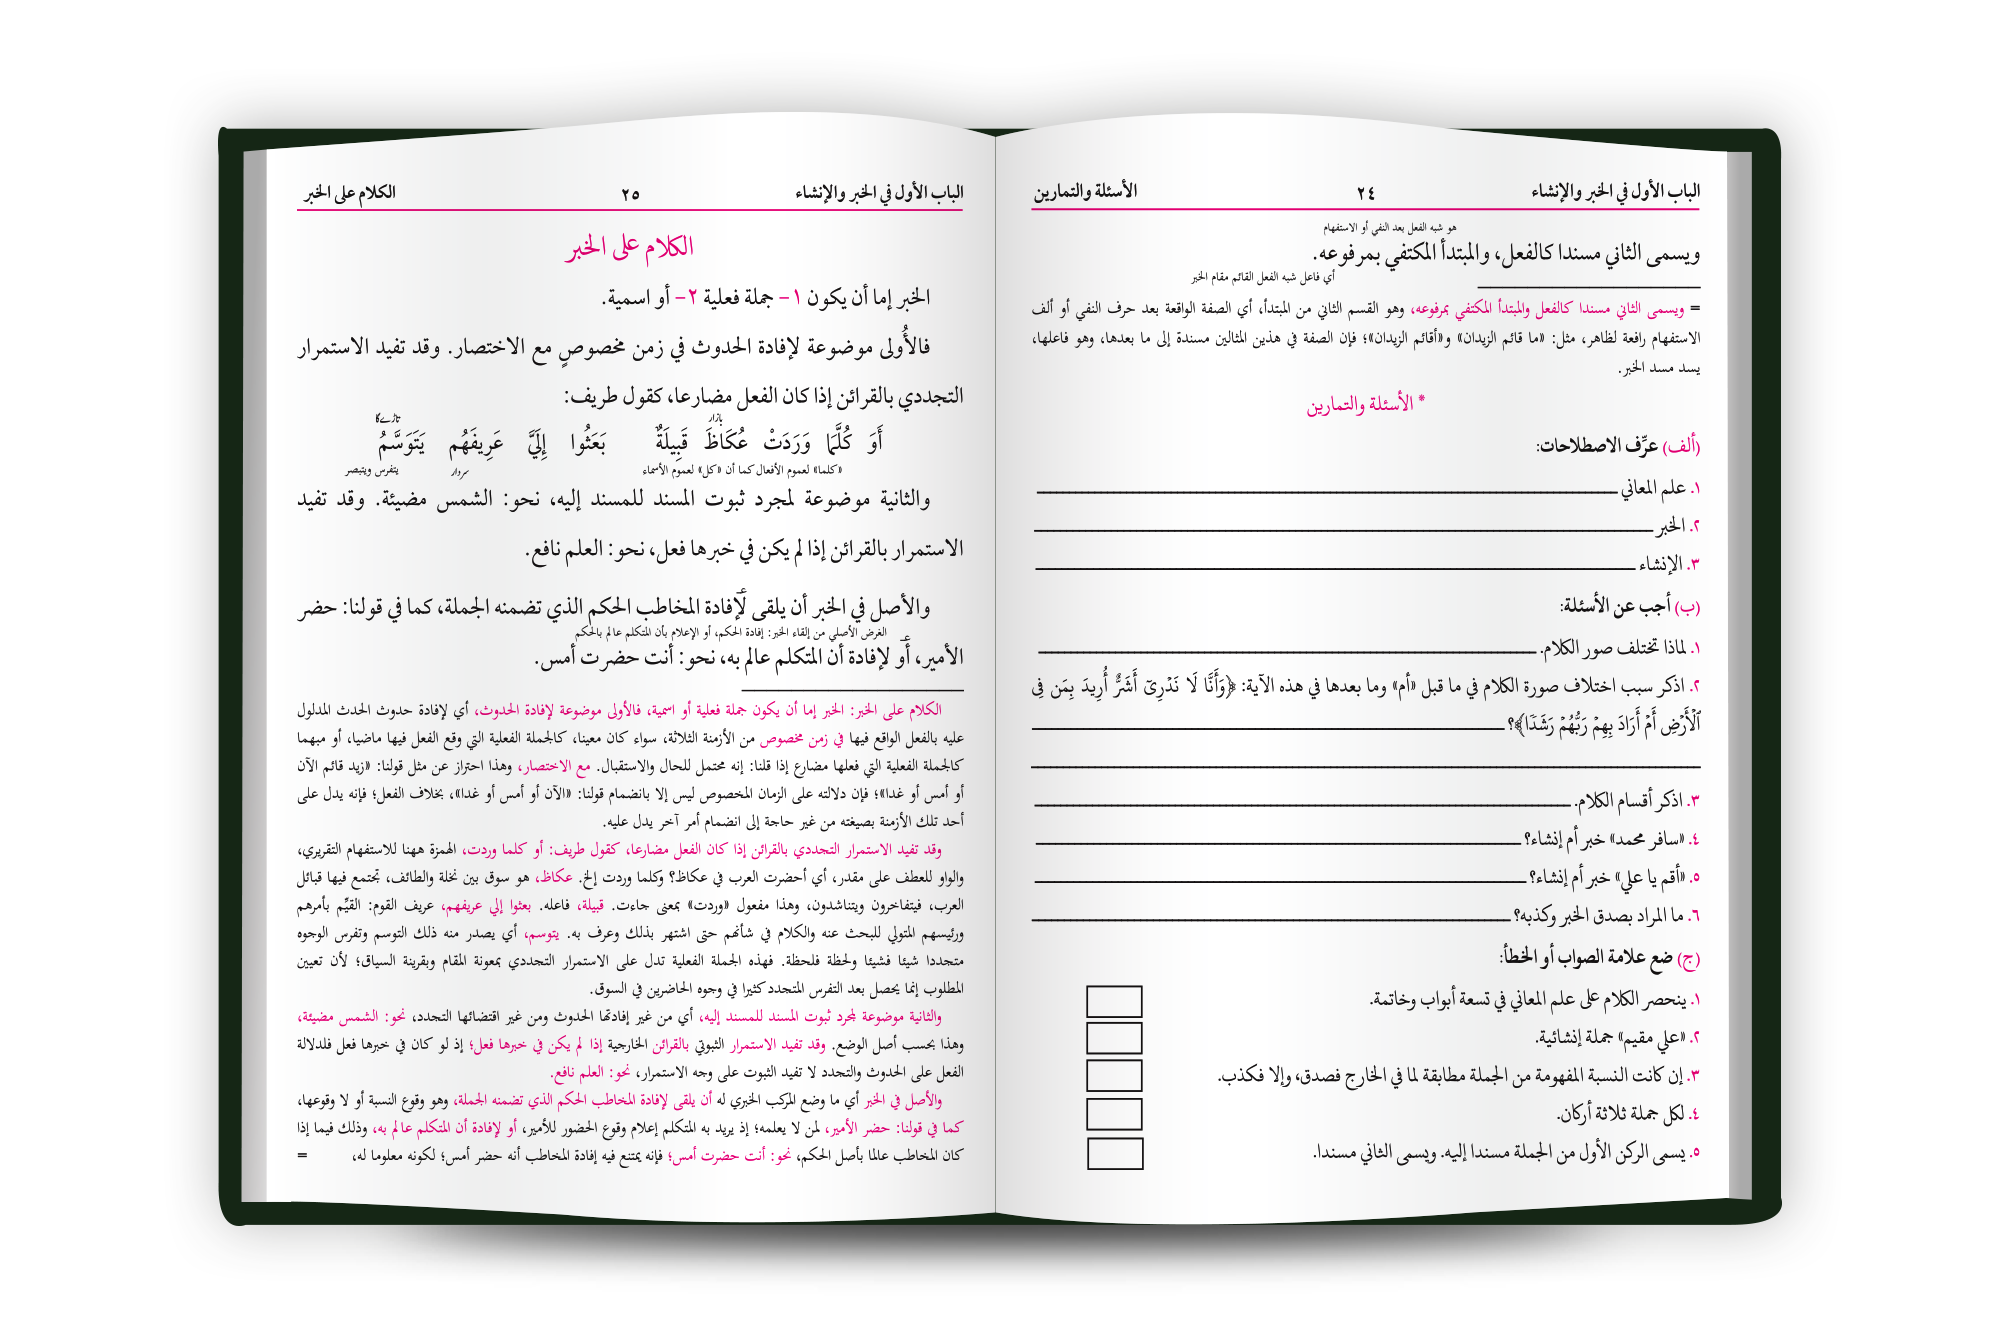 الباب الأول في الخبر والإنشاء ٢٤ الأسئلة والتمارين
هو شبه الفعل بعد النفي أو الاستفهام
ويسمى الثاني مسندا كالفعل، والمبتدأ المكتفي بمرفوعه.
أي فاعل شبه الفعل القائم مقام الخبر
= ويسمى الثاني مسندا كالفعل والمبتدأ المكتفي بمرفوعه، وهو القسم الثاني من المبتدأ، أي الصفة الواقعة بعد حرف النفي أو ألف
الاستفهام رافعة لظاهر، مثل: «ما قائم الزيدان» و«أقائم الزيدان»؛ فإن الصفة في هذين المثالين مسندة إلى ما بعدها، وهو فاعلها،
يسد مسد الخبر.
* الأسئلة والتمارين
(ألف) عرِّف الاصطلاحات:
١. علم المعاني
٢. الخبر
٣. الإنشاء
(ب) أجب عن الأسئلة:
١. لماذا تختلف صور الكلام.
٢. اذكر سبب اختلاف صورة الكلام في ما قبل «أم» وما بعدها في هذه الآية: ﴿وَأَنَّا لَا نَدْرِىٓ أَشَرٌّ أُرِيدَ بِمَن فِى
ٱلْأَرْضِ أَمْ أَرَادَ بِهِمْ رَبُّهُمْ رَشَدًا﴾؟
٣. اذكر أقسام الكلام.
٤. «سافر محمد» خبر أم إنشاء؟
٥. «أقم يا علي» خبر أم إنشاء؟
٦. ما المراد بصدق الخبر وكذبه؟
(ج) ضع علامة الصواب أو الخطأ:
١. ينحصر الكلام على علم المعاني في تسعة أبواب وخاتمة.
٢. «علي مقيم» جملة إنشائية.
٣. إن كانت النسبة المفهومة من الجملة مطابقة لما في الخارج فصدق، وإلا فكذب.
٤. لكل جملة ثلاثة أركان.
٥. يسمى الركن الأول من الجملة مسندا إليه. ويسمى الثاني مسندا.
الباب الأول في الخبر والإنشاء ٢٥ الكلام على الخبر
الكلام على الخبر
الخبر إما أن يكون ١- جملة فعلية ٢- أو اسمية.
فالأُولى موضوعة لإفادة الحدوث في زمن مخصوصٍ مع الاختصار. وقد تفيد الاستمرار
التجددي بالقرائن إذا كان الفعل مضارعا، كقول طريف:
بازار تاڑےگا
أَوَ كُلَّمَا وَرَدَتْ عُكَاظَ قَبِيلَةٌ بَعَثُوا إِلَيَّ عَرِيفَهُم يَتَوَسَّمُ
«كلما» لعموم الأفعال كما أن «كل» لعموم الأسماء سردار يتفرس ويتبصر
والثانية موضوعة لمجرد ثبوت المسند للمسند إليه، نحو: الشمس مضيئة. وقد تفيد
الاستمرار بالقرائن إذا لم يكن في خبرها فعل، نحو: العلم نافع.
والأصل في الخبر أن يلقى لإفادة المخاطب الحكم الذي تضمنه الجملة، كما في قولنا: حضر
الغرض الأصلي من إلقاء الخبر: إفادة الحكم، أو الإعلام بأن المتكلم عالم بالحكم
الأمير، أو لإفادة أن المتكلم عالم به، نحو: أنت حضرت أمس.
الكلام على الخبر: الخبر إما أن يكون جملة فعلية أو اسمية، فالأولى موضوعة لإفادة الحدوث، أي لإفادة حدوث الحدث المدلول
عليه بالفعل الواقع فيها في زمن مخصوص من الأزمنة الثلاثة، سواء كان معينا، كالجملة الفعلية التي وقع الفعل فيها ماضيا، أو مبهما
كالجملة الفعلية التي فعلها مضارع إذا قلنا: إنه محتمل للحال والاستقبال. مع الاختصار، وهذا احتراز عن مثل قولنا: «زيد قائم الآن
أو أمس أو غدا»؛ فإن دلالته على الزمان المخصوص ليس إلا بانضمام قولنا: «الآن أو أمس أو غدا»، بخلاف الفعل؛ فإنه يدل على
أحد تلك الأزمنة بصيغته من غير حاجة إلى انضمام أمر آخر يدل عليه.
وقد تفيد الاستمرار التجددي بالقرائن إذا كان الفعل مضارعا، كقول طريف: أو كلما وردت، الهمزة ههنا للاستفهام التقريري،
والواو للعطف على مقدر، أي أحضرت العرب في عكاظ؟ وكلما وردت إلخ. عكاظ، هو سوق بين نخلة والطائف، تجتمع فيها قبائل
العرب، فيتفاخرون ويتناشدون، وهذا مفعول «وردت» بمعنى جاءت. قبيلة، فاعله. بعثوا إلي عريفهم، عريف القوم: القيِّم بأمرهم
ورئيسهم المتولي للبحث عنه والكلام في شأنهم حتى اشتهر بذلك وعرف به. يتوسم، أي يصدر منه ذلك التوسم وتفرس الوجوه
متجددا شيئا فشيئا ولحظة فلحظة. فهذه الجملة الفعلية تدل على الاستمرار التجددي بمعونة المقام وبقرينة السياق؛ لأن تعيين
المطلوب إنما يحصل بعد التفرس المتجدد كثيرا في وجوه الحاضرين في السوق.
والثانية موضوعة لمجرد ثبوت المسند للمسند إليه، أي من غير إفادتها الحدوث ومن غير اقتضائها التجدد، نحو: الشمس مضيئة،
وهذا بحسب أصل الوضع. وقد تفيد الاستمرار الثبوتي بالقرائن الخارجية إذا لم يكن في خبرها فعل؛ إذ لو كان في خبرها فعل فلدلالة
الفعل على الحدوث والتجدد لا تفيد الثبوت على وجه الاستمرار، نحو: العلم نافع.
والأصل في الخبر أي ما وضع المركب الخبري له أن يلقى لإفادة المخاطب الحكم الذي تضمنه الجملة، وهو وقوع النسبة أو لا وقوعها،
كما في قولنا: حضر الأمير، لمن لا يعلمه؛ إذ يريد به المتكلم إعلام وقوع الحضور للأمير، أو لإفادة أن المتكلم عالم به، وذلك فيما إذا
كان المخاطب عالما بأصل الحكم، نحو: أنت حضرت أمس؛ فإنه يمتنع فيه إفادة المخاطب أنه حضر أمس؛ لكونه معلوما له، =